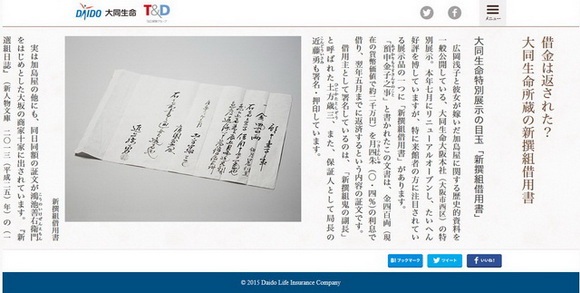 DAIDO 大同生命
T&D
メニュー
借金は返された?
大同生命所蔵の新撰組借用書
大同生命特別展示の目玉「新撰組借用書」
広岡浅子と彼女が嫁いだ加島屋に関する歴史的資料を
一般公開している、大同生命大阪本社(大阪市西区)の特
別展示。本年七月にリニューアルオープンし、たいへん
好評を博していますが、特に来館者の方に注目されてい
る展示品の一つに「新撰組借用書」があります。
「預申金子之事」と書かれたこの文書は、金四百両(現
在の貨幣価値で約二千万円)を月四朱(〇・四%)の利息で
借り、翌年五月までに返済するという内容の証文です。
借用主として署名しているのは、「新撰組鬼の副長」
と呼ばれた土方歳三、また、保証人として局長の
近藤勇も署名・押印しています。
新撰組借用書
実は加島屋の他にも、同日同額の証文が鴻池善右衛門
をはじめとした大坂の商家十家に出されています。『新
選組日誌』(新人物文庫 二〇一三(平成二五)年)の(一
ブックマーク
ツイート
いいね!
© 2015 Daido Life Insurance Company